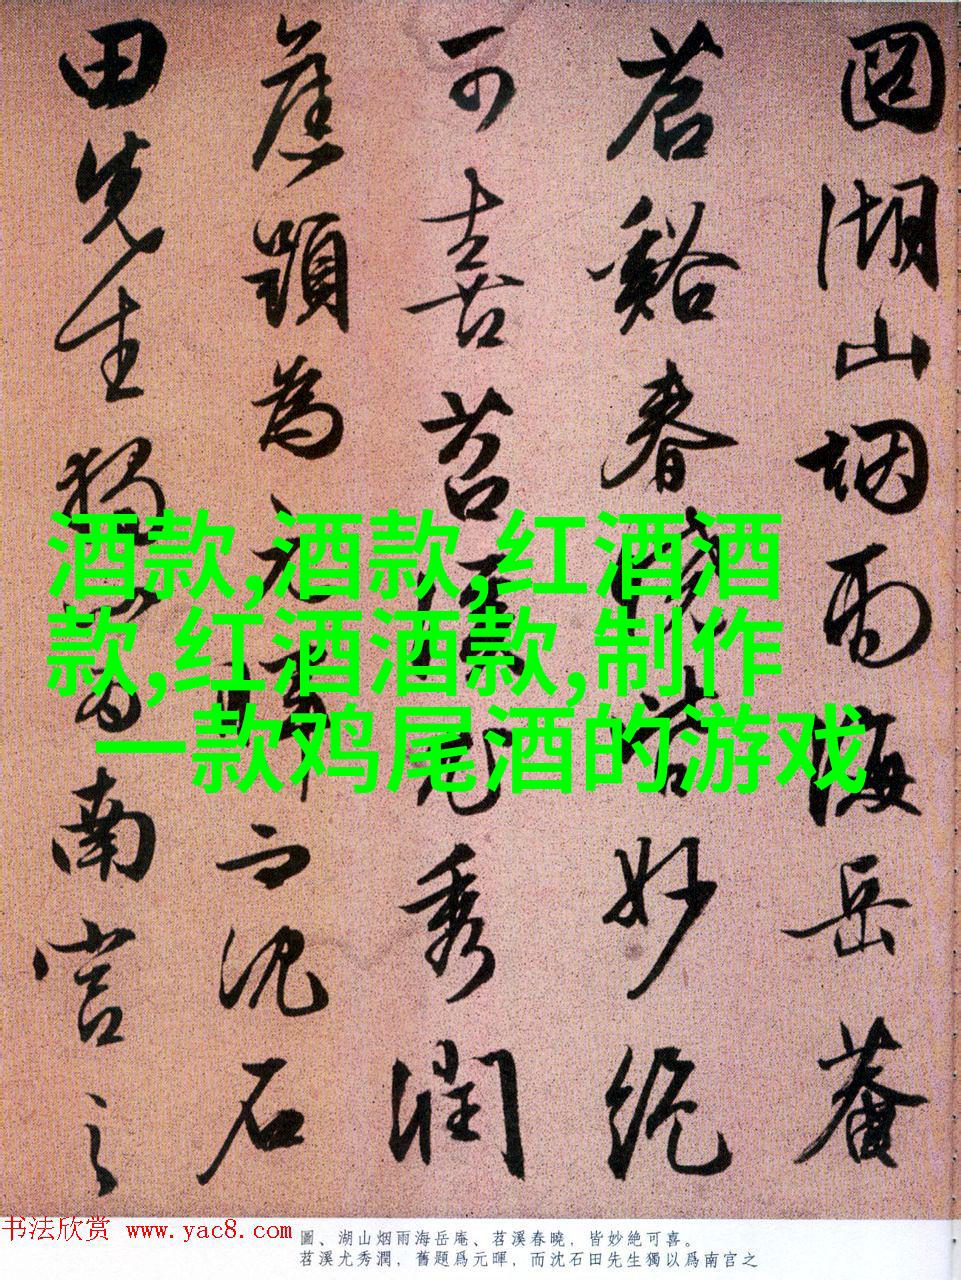 圖湖山烟雨海岳菴
苕谿春曉皆妙絶
可喜苕溪尤秀潤
舊題為元暉而沈石
田先生獨以為南宫之
酒款,酒款,红酒酒
款,红酒酒款,制作
一款鸡尾酒的游戏
书法欣赏 www.yac8.com
圖、湖山烟雨海岳庵、苕溪春曉，皆妙絶可喜。
苕溪尤秀潤，舊題爲元暉，而沈石田先生獨以爲南宫之